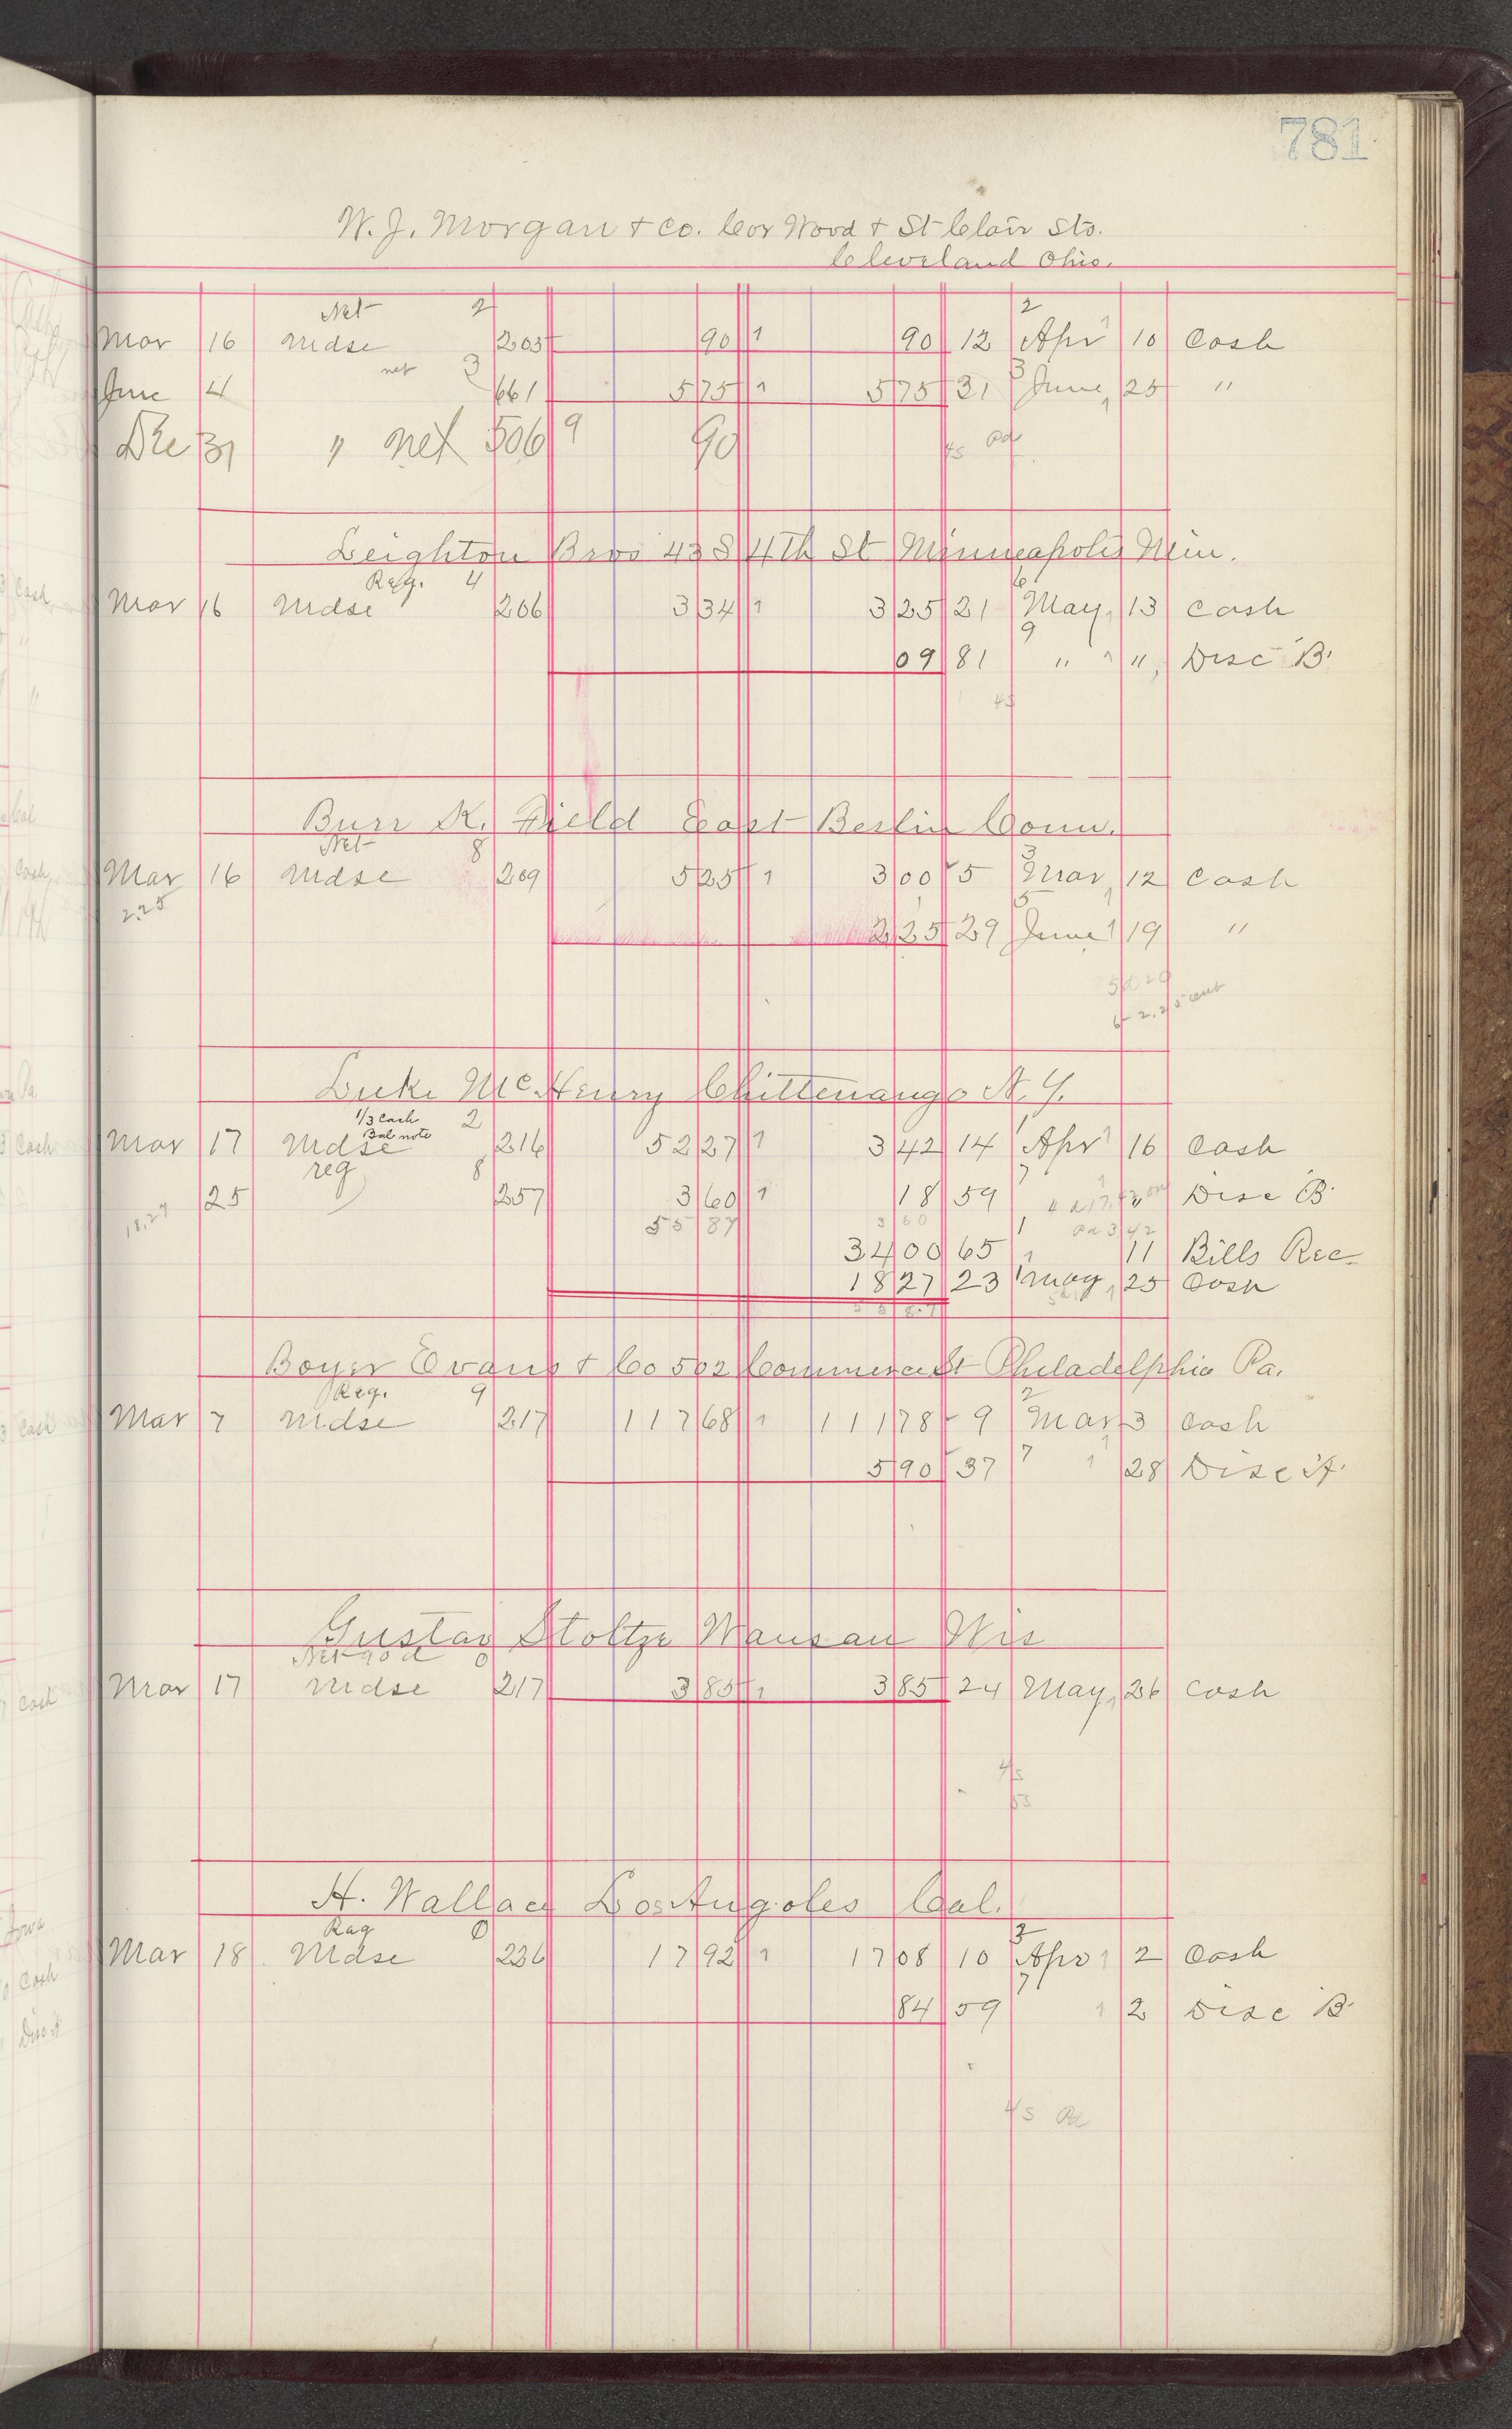 781
W. J. Morgan & Co. Cor Wood & St Clair Sts.
Cleveland Ohio.
Net 2 2
Mar 16 Mdse 203 90 1 90 12 Apr 1 10 Cash
net 3 3
June 4 661 575 1 575 31 June 1 25 "
Dec 31 " net 506 9 90 4s Pd
Leighton Bros 43 S 4th St Minneapolis Min.
Reg. 4 6
Mar 16 Mdse 206 334 1 325 21 May 1 13 Cash
9
09 81 " 1 " Disc B.
4s
Burr K. Field East Berlin Conn.
Net 8 3
Mar 16 Mdse 209 525 1 300 5 Mar 1 12 Cash
2.25 5
225 29 June 1 19 "
2.25 cent
Luke McHenry Chittenango N. Y.
1/3 Cash 2 1
Bal note
Mar 17 Mdse 216 5227 1 342 14 Apr 1 16 Cash
reg 8 7
25 257 360 1 18 59 Disc B.
18.27 55 87 3 60 Pd 3 42
3400 65 1 1 11 Bills Rec
1827 23 1 May 1 25 Cash
55 87
Boyer Evans & Co 502 Commerce St Philadelphia Pa.
Reg. 9 2
Mar 7 Mdse 217 11768 1 11178 9 Mar 3 Cash
590 37 7 1 28 Disc A.
Gustav Stoltze Wausau Wis
Net 90 d 0
Mar 17 Mdse 217 385 1 385 24 May 1 26 Cash
4/s
53
H. Wallace Los Angoles Cal.
Reg 0 3
Mar 18 Mdse 226 1792 1 1708 10 Apr 1 2 Cash
7
84 59 1 2 Disc B.
4/s Pd